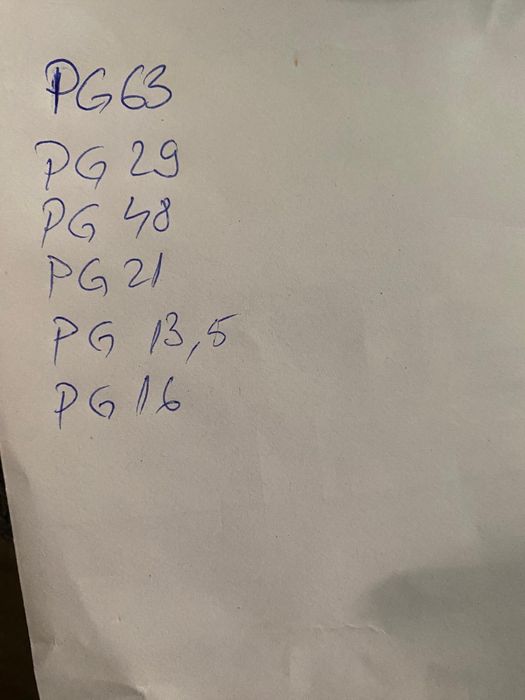 PG 63
PG 29
PG 48
PG 21
PG 13,5
PG 16